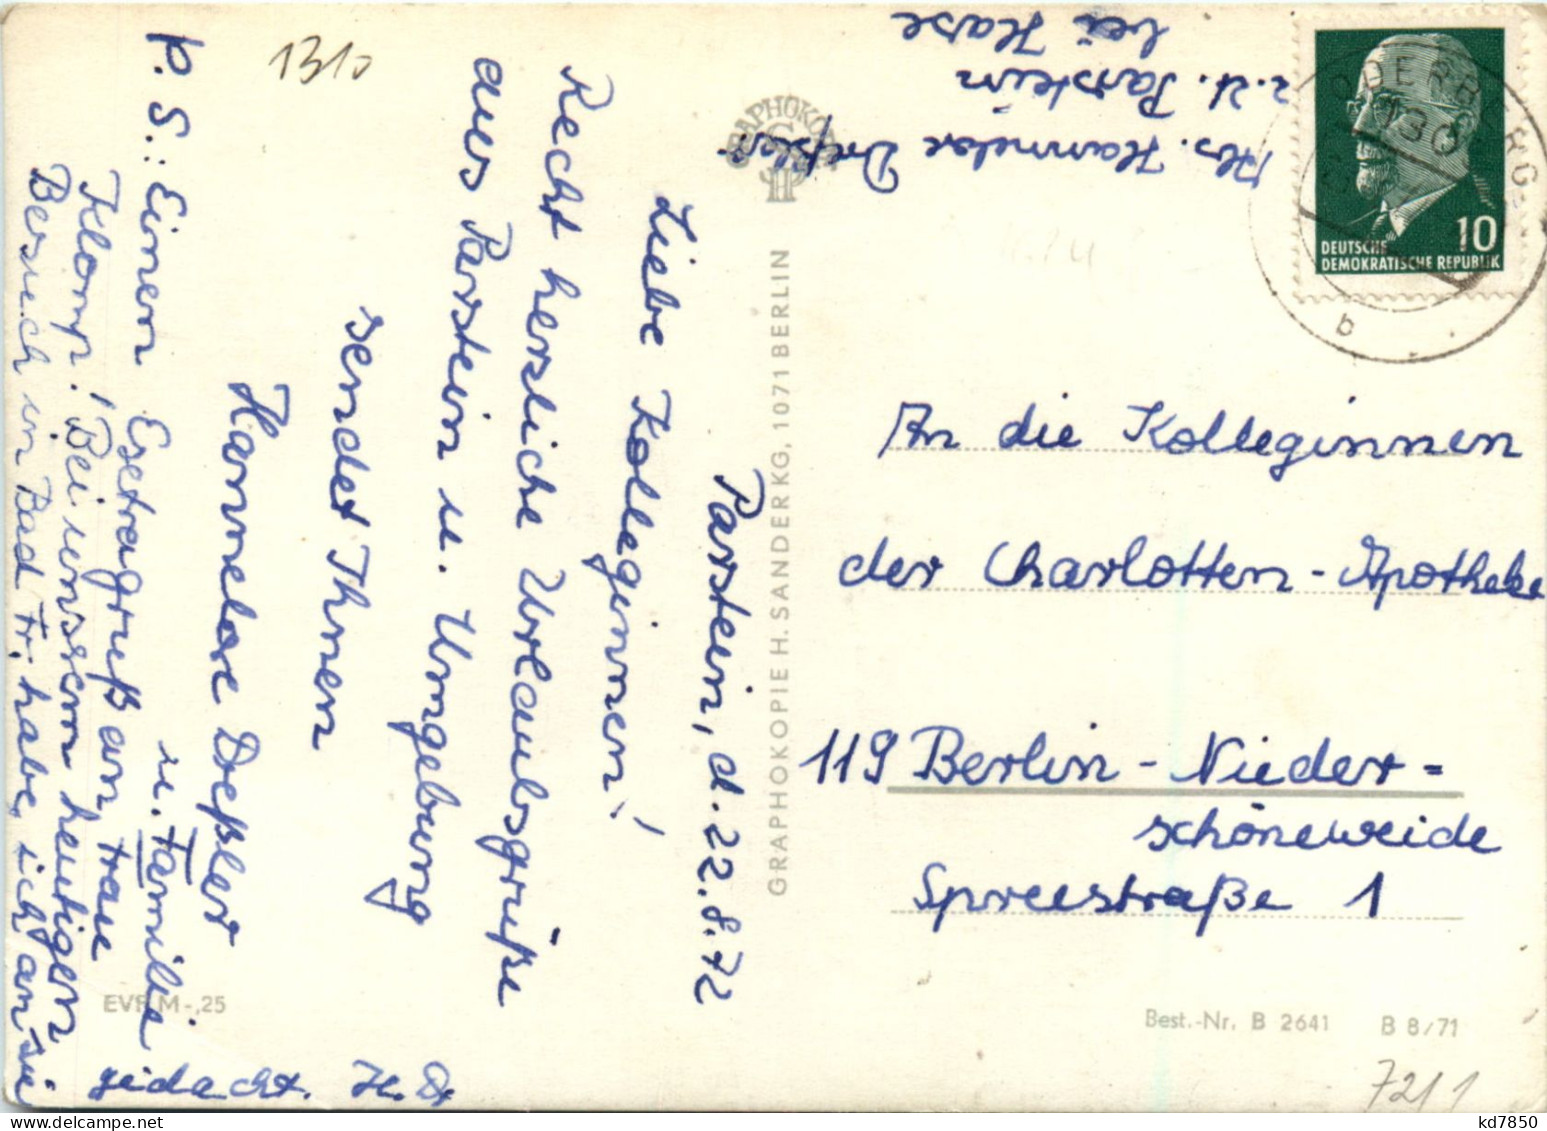 1310
Parstein, d. 22.8.72
Liebe Kolleginnen!
Recht herzliche Urlaubsgrüße
aus Parstein u. Umgebung
sendet Ihnen
Hannelore Dreßler
u. Familie
P.S.: Einen Extragruß an Frau
Klomp! Bei unserem heutigen
Besuch in Bad Fr. habe ich an sie
gedacht. H. Dr.
Abs. Hannelore Dreßler
z. Zt. Parstein
bei Hase
GRAPHOKOPIE
GRAPHOKOPIE H. SANDER KG, 1071 BERLIN
ODERBERG
130
b
10
DEUTSCHE
DEMOKRATISCHE REPUBLIK
An die Kolleginnen
der Charlotten-Apotheke
119 Berlin-Nieder=
schöneweide
Spreestraße 1
EVP M -,25
Best.-Nr. B 2641 B 8/71
72/1
kd7850